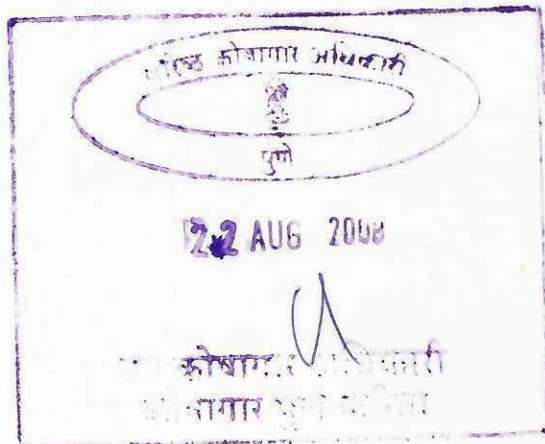 वरिष्ठ कोषागार अधिकारी
पुणे
22 AUG 2008
कोषागार अधिकारी
कोषागार पुणे